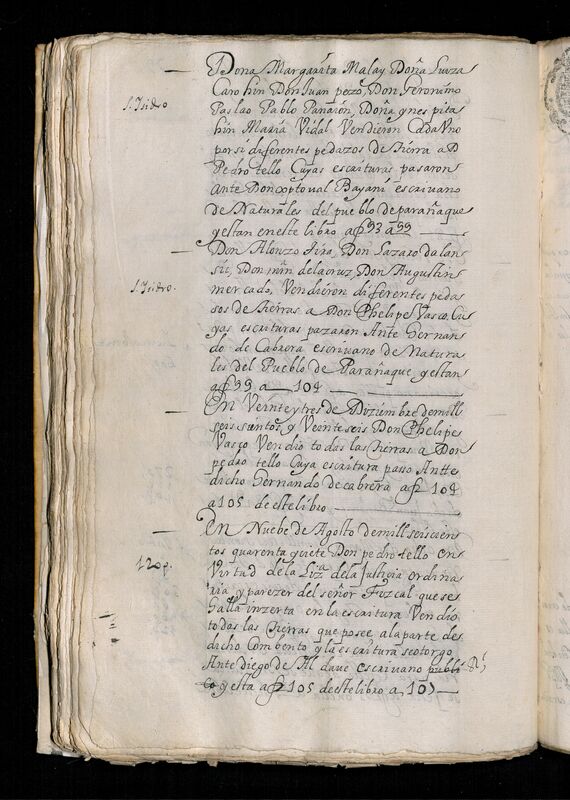 Dona Margarita Malay Doña Luyza
Carohin Don Juan pezo, Don Geronimo
Paslao Pablo Panañon, Doña ynes pita
S. Isidro
hin Maria Vidal Vendieron Cada Vno
por si diferentes pedazos de tierra a D
Pedro tello Cuyas escrituras pasaron
Ante Don xptoual Bayani escriuano
de Naturales del pueblo de parañaque
y estan en este libro a f 93 a 99
Don Alonzo Jira, Don Lazaro dalan
sit, Don min delacruz, Don Augustin
S. Isidro.
mercado, Vendieron diferentes peda
sos de tierras a Don Phelipe Vasco, Cu
yas escrituras pazaron Ante Hernan
do de Cabrera escriuano de Natura
les del Pueblo de Parañaque y estan
a f 99 a 104
En Veinte y tres de Dizümbre de mill
seis sientos, y Veinte seis Don Phelipe
Vasco Vendio todas las tierras a Don
pedro tello Cuya escritura passo Antte
dicho Hernando de cabrera a f 104
a 105 de este libro
En Nuebe de Agosto de mill seiscien
tos quarenta y siete Don pedro tello en
120 p.
Virtud de la Liza de la Justicia ordina
ria y parezer del señor Fizcal que se
halla inzerta en la escritura Vendio
todas las tierras que posee a la parte de
dicho Combento y la escritura se otorgo
Ante diego de Aldaue escriuano publi Rl
co y esta a f 105 de este libro a 10